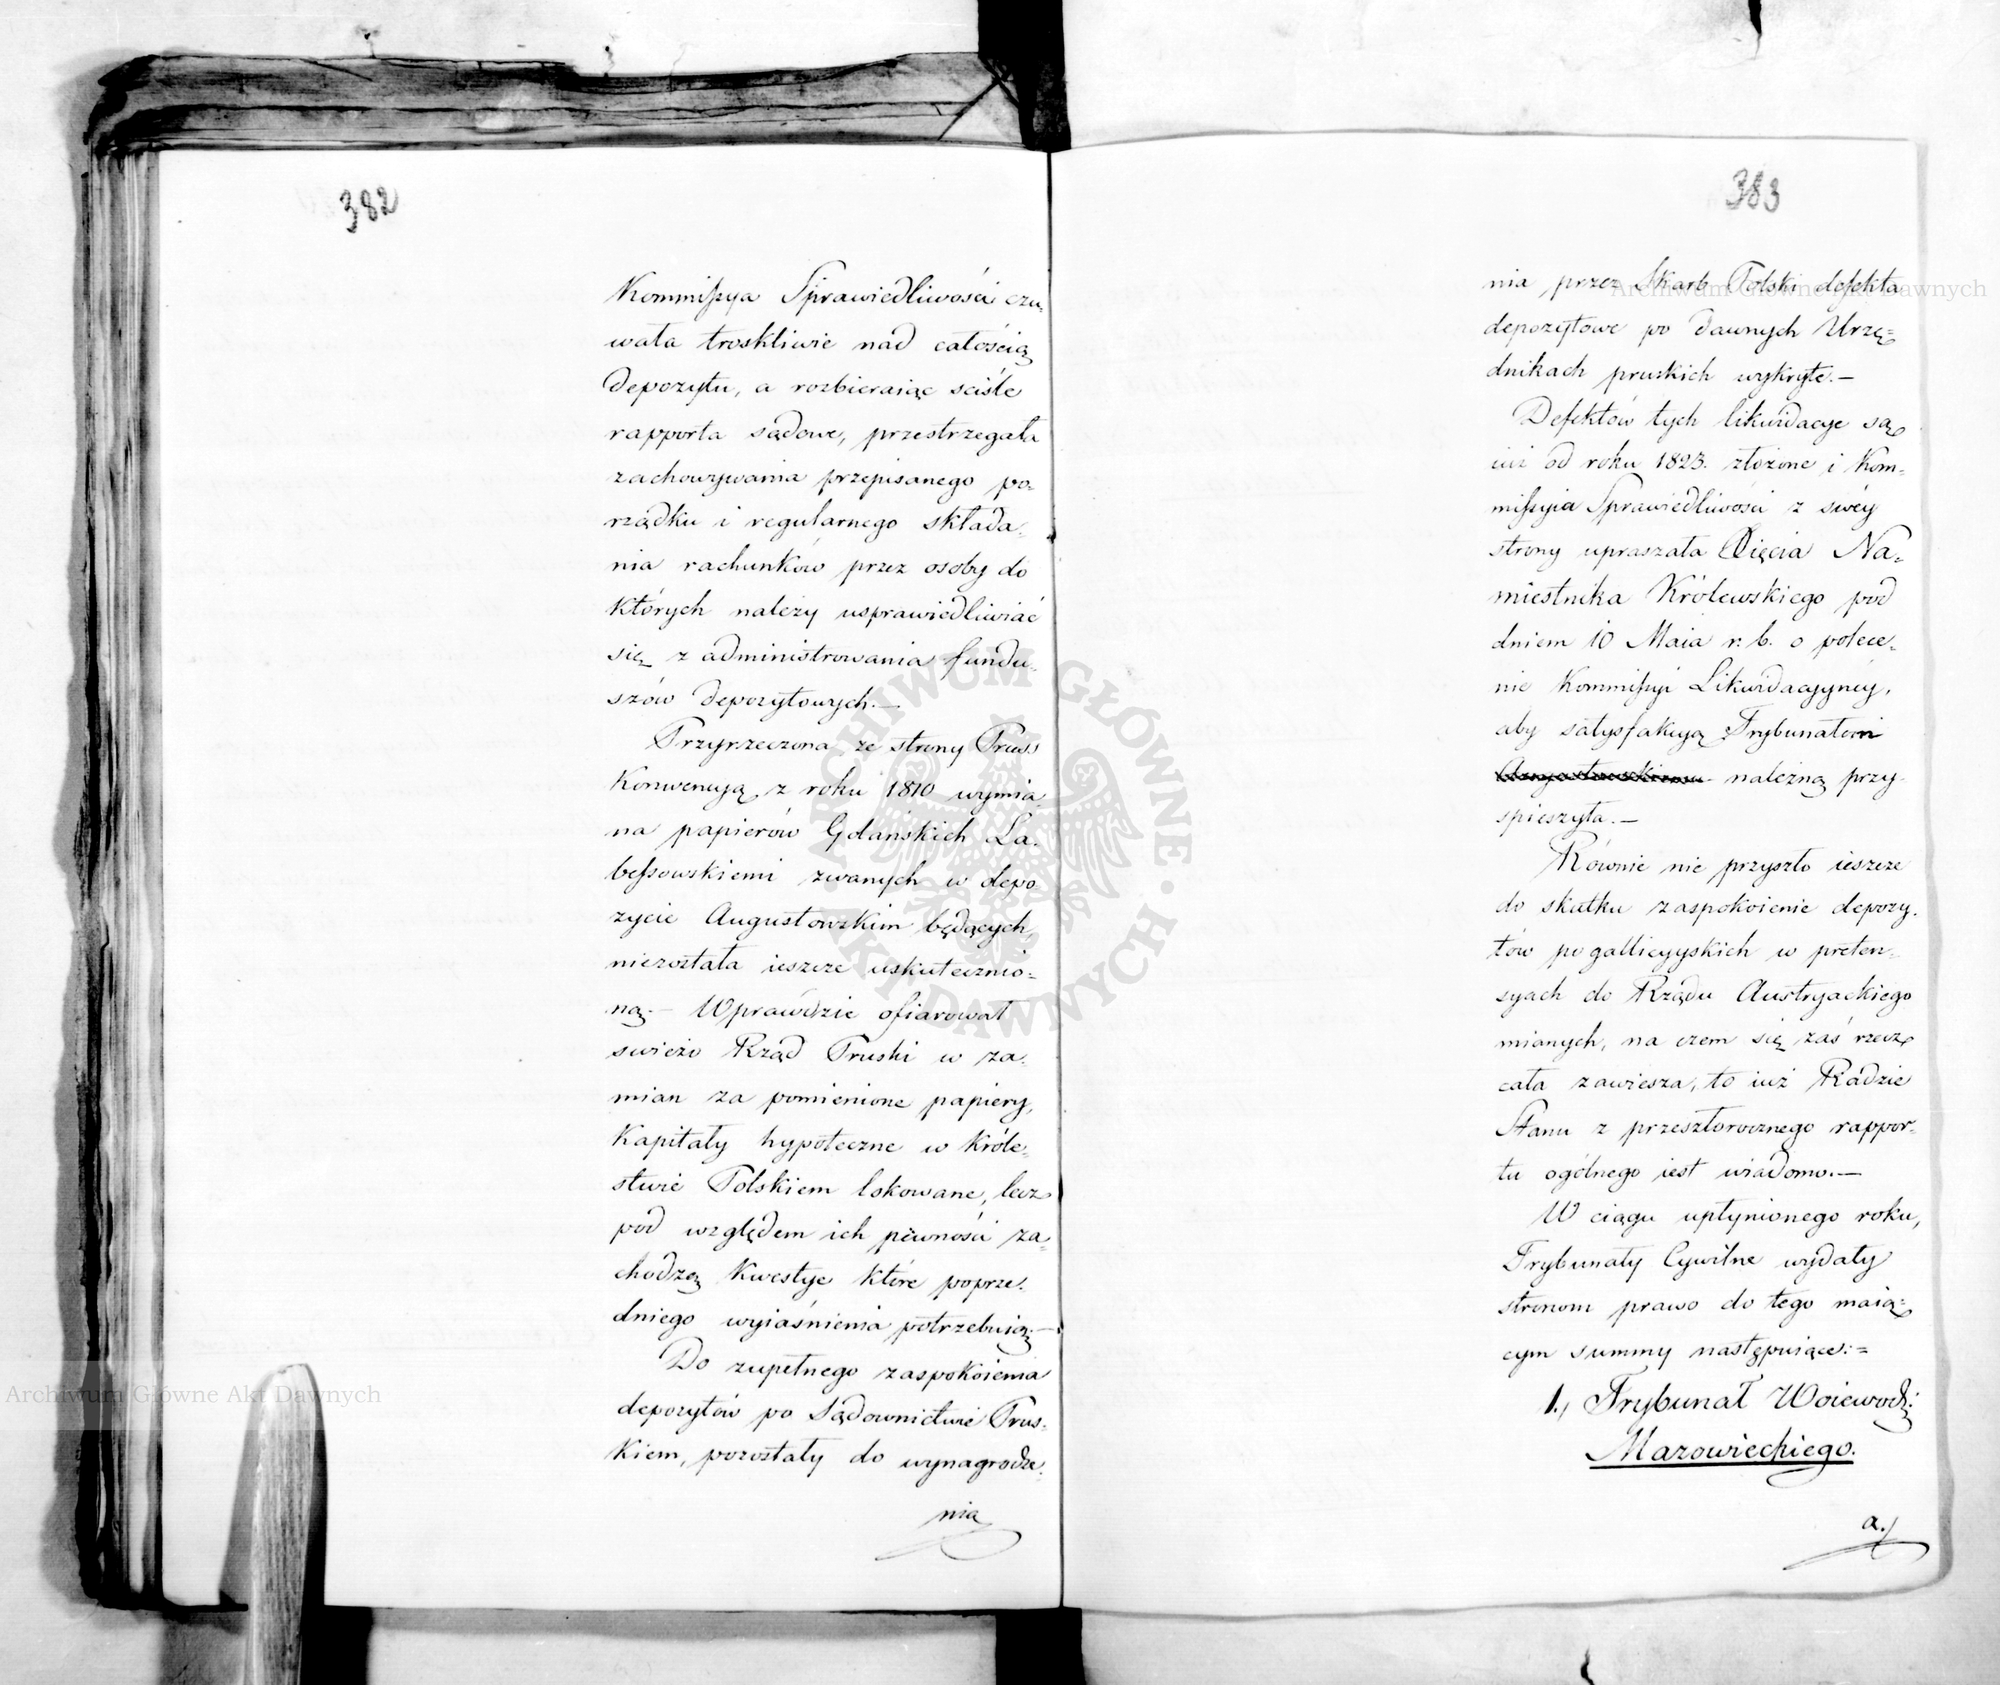 382
Kommissya Sprawiedliwości czu-
wała troskliwie nad całością
depozytu, a rozbieraiąc sciśle
rapporta sądowe, przestrzegała
zachowywania przepisanego po-
rządku i regularnego składa-
nia rachunków przez osoby do
których należy usprawiedliwiać
się z administrowania fundu-
szów depozytowych.—
Przyrzeczona ze strony Pruss
Konwencyą z roku 1810 wymia-
na papierów Gdańskich La-
bessowskiemi zwanych w depo-
zycie Augustowskim będących,
niezostała ieszcze uskutecznio=
ną.— Wprawdzie ofiarował
swieżo Rząd Pruski w za-
mian za pomienione papiery,
Kapitały hypoteczne w Króle-
stwie Polskiem lokowane, lecz
pod względem ich pewności za-
chodzą kwestye które poprze-
dniego wyiaśnienia potrzebuią.—
Do zupełnego zaspokoienia
depozytów po Sądownictwie Prus-
kiem, pozostały do wynagrodze-
nia
383
nia przez Skarb Polski defekta
depozytowe po dawnych Urzę=
dnikach pruskich wykryte.—
Defektów tych likwidacye są
iuż od roku 1823. złożone i Kom-
missyia Sprawiedliwości z swéy
strony upraszała Xięcia Na-
miestnika Królewskiego pod
dniem 10 Maia r. b. o polece-
nie Kommissyi Likwidacyyney,
aby satysfakcyą Trybunałom
należną przy-
spieszyła.—
Równie nie przyszło ieszcze
do skutku zaspokoienie depozy-
tów po gallicyyskich w preten-
syach do Rządu Austryackiego
mianych, na czem się zaś rzecz
cała zawiesza, to iuż Radzie
Stanu z przeszłorocznego rappor-
tu ogólnego iest wiadomo.—
W ciągu upłynionego roku,
Trybunały Cywilne wydały
stronom prawo do tego maią=
cym summy następuiące:=
1., Trybunał Woiewodz:
Mazowieckiego.
a./
Archiwum Główne Akt Dawnych
Archiwum Główne Akt Dawnych
ARCHIWUM GŁÓWNE · AKT DAWNYCH ·